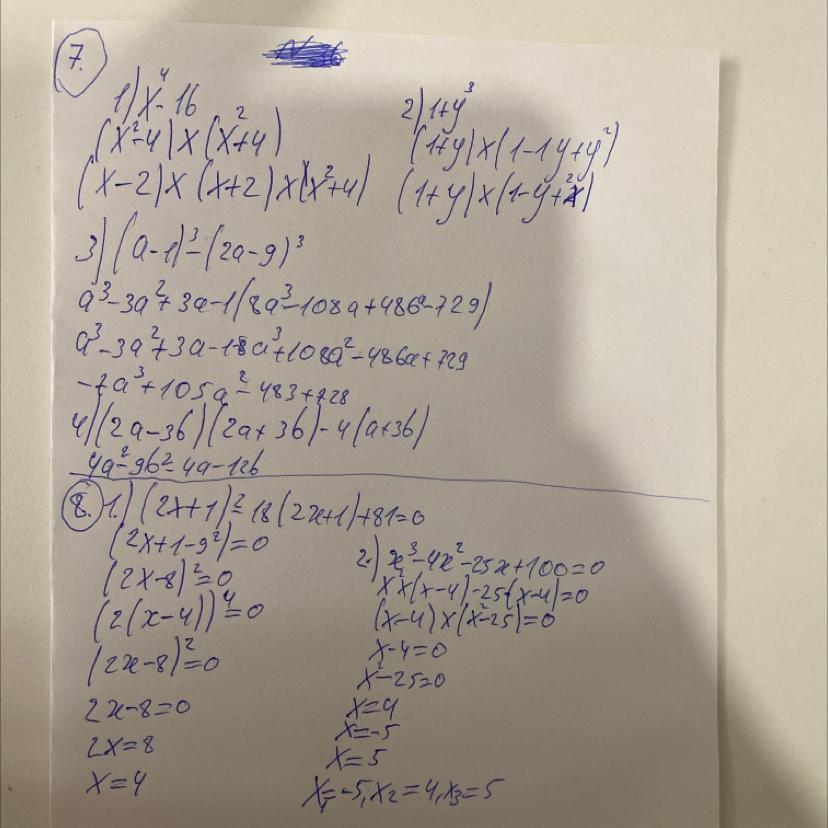 7.
1) x⁴-16
(x²-4)×(x²+4)
(x-2)×(x+2)×(x²+4)
2) 1+y³
(1+y)×(1-1y+y²)
(1+y)×(1-y+²)
3) (a-1)³-(2a-9)³
a³-3a²+3a-1(8a³-108a+486-729)
a³-3a²+3a-1-8a³+108a²-486a+729
-7a³+105a²-483+728
4) (2a-3b)(2a+3b)-4(a+3b)
4a²-9b²-4a-12b
8. 1.) (2x+1)²-18(2x+1)+81=0
(2x+1-9²)=0
(2x-8)²=0
(2(x-4))⁴=0
(2x-8)²=0
2x-8=0
2x=8
x=4
2.) x³-4x²-25x+100=0
x²×(x-4)-25(x-4)=0
(x-4)×(x²-25)=0
x-4=0
x²-25=0
x=4
x=-5
x=5
x₁=-5, x₂=4, x₃=5